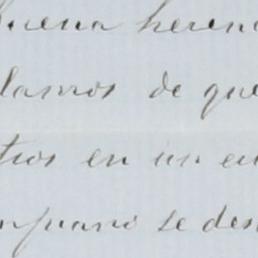 buena heren
lamos de que
tros en un cu
mpuano se des